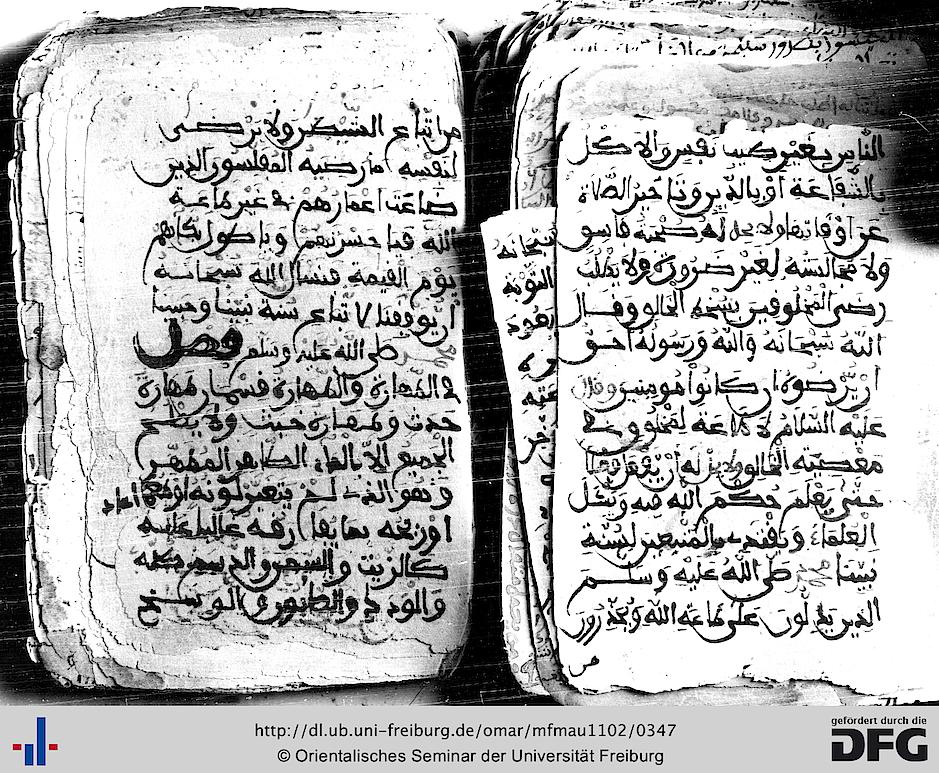 الناس بغير طيب نفس والاكل
بالشفاعة أو بالدين وتاخير الصلاة
عن اوقاتها ولا يحل له صحبة فاسق
ولا مجالسته لغير ضرورة ولا يطلب
رضى المخلوقين بسخط الخالق وقال
الله سبحانه والله ورسوله احق
ان يرضوه ان كانوا مومنين وقال
عليه السلام لا طاعة لمخلوق في
معصية الخالق ولا يحل له ان يفعل فعلا
حتى يعلم حكم الله فيه ويسئل
العلماء ويقتدي بالمتبعين لسنة
نبينا محمد صلى الله عليه وسلم
الذين يدلون على طاعة الله ويحذرون
من
من اتباع الشيطان ولا يرضى
لنفسه ما رضيه المفلسون الذين
ضاعت اعمارهم في غير طاعة
الله فيا حسرتهم ويا طول بكائهم
يوم القيمة فنسال الله سبحانه
ان يوفقنا لاتباع سنة نبينا وحبيبنا
محمد صلى الله عليه وسلم فصل
في الطهارة والطهارة قسمان طهارة
حدث وطهارة خبث ولا يصح
الجميع الا بالماء الطاهر المطهر
وهو الذي لم يتغير لونه او طعمه
او ريحه بما يفارقه غالبا
كالزيت والسمن والدسم كله
والوذح والصابون والوسخ
سبحانه
التوبة
http://dl.ub.uni-freiburg.de/omar/mfmau1102/0347
© Orientalisches Seminar der Universität Freiburg
gefördert durch die
DFG